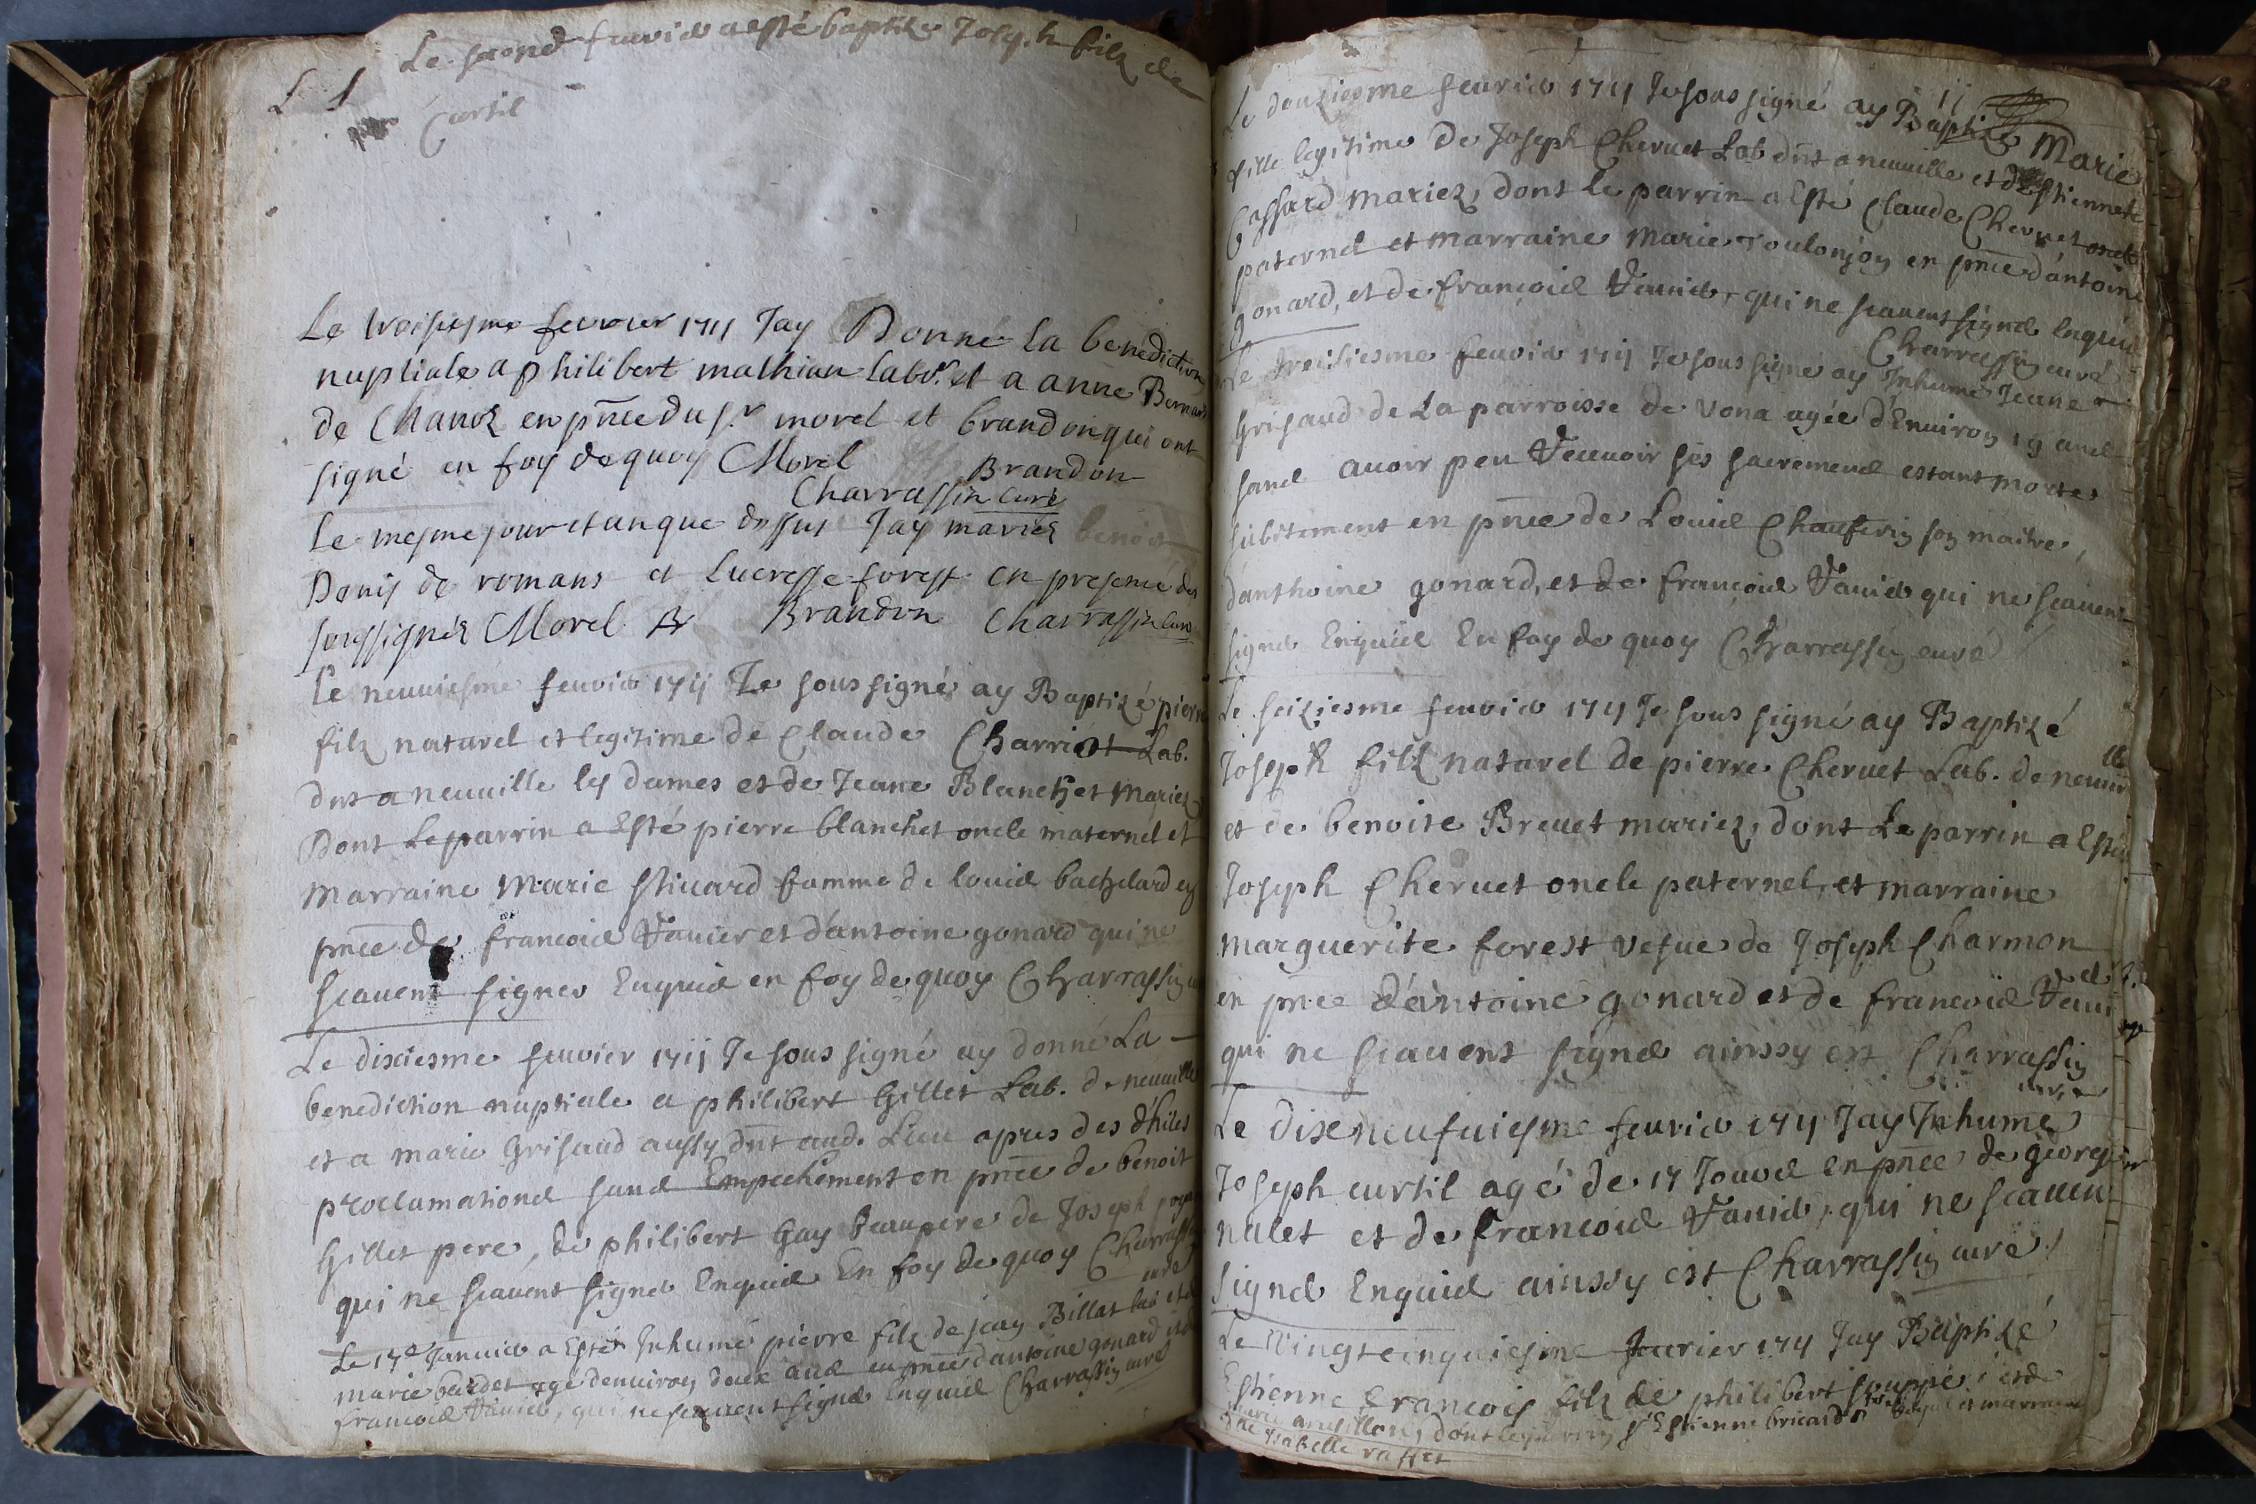 Le second feuvier a esté baptizé Joseph filz de
L 1
Curtil
Le troisiesme feuvrier 1711 Jay Donné la benediction
nuptiale a philibert mathian labr. et a anne Bernard
de Chanoz en pnce du sr. morel et brandon qui ont
signé en foy de quoy CMorel Brandon
Charrassin Curé
Le mesme jour et an que dessus Jay mariez benoist
Denis de romans et Lucresse forest en presence des
soussignéz CMorel Brandon Charrassin Curé
Le neuuiesme feuvier 1711 Je sous signé ay Baptizé pierre
filz naturel et legitime de Claude Charriot Lab.
dnt a neuuille les dames et de Jeane Blanchet Mariez
Dont le parrin a Esté pierre blanchet oncle maternel et
marraine Marie Stiuard famme de louis bachelard en
pnce de francois Vauier et d'antoine gonard qui ne
scauent signer Enquis en foy de quoy Charrassin
Le dixiesme feuvier 1711 Je sous signé ay donné La
benediction nuptiale a philibert Gillet Lab. de neuuille
et a marie Grisaud aussy dnt aud. Lieu apres des d'hües
proclamations sans Empechement en pnce de benoit
Gillet pere, de philibert Gay beaupere de Joseph
qui ne scauent signer Enquis En foy de quoy Charrassin
curé
Le 17e Januier a Esté Inhumé pierre filz de jean Billat
marie bardet agé denuiron deux ans en pnce d'antoine gonard et de
francois Vauier, qui ne scauent signer Enquis Charrassin curé
11
Le douziesme feuvrier 1711 Je sous signé ay Baptizé Marie
fille legitime de Joseph Cheruet Lab dnt a neuuille et d'Estiennete
Cassard mariez, dont le parrin a Esté Claude Cheruet oncle
paternel et marraine Marie Toulonjon en pnce d'antoine
gonard, et de francois Vauier, qui ne scauent signer Enquis
Charrassin curé
Le treiziesme feuvier 1711 Je sous signé ay Inhumé Jeane
Grisaud de La parroisse de Vona agée d'Enuiron 19 ans
sans auoir peu Receuoir ses sacremens estant morte
subitement en pnce de Louis Chauferin son maitre,
d'anthoine gonard, et de francois Vauier qui ne scauent
signer Enquis En foy de quoy Charrassin curé
Le seiziesme feuvier 1711 Je sous signé ay Baptizé
Joseph filz naturel de pierre Cheruet Lab. de neuuille
et de benoite Breuet mariez, dont Le parrin a Esté
Joseph Cheruet oncle paternel, et marraine
Marguerite forest vefue de Joseph Charmon
en pnce d'antoine gonard et de francois Vauier
qui ne scauent signer ainssy est Charrassin
curé
Le dixneufuiesme feuvrier 1711 Jay Inhumé
Joseph curtil agé de 17 Jours en pnce de george
nalet et de francois Vauier, qui ne scauent
signer Enquis ainssy est Charrassin curé
Le Vingtcinquiesme feurier 1711 Jay Baptizé
Estienne francois filz de philibert souppé et de
dont le parrin sr Estienne bricard et marraine
isabelle raffet